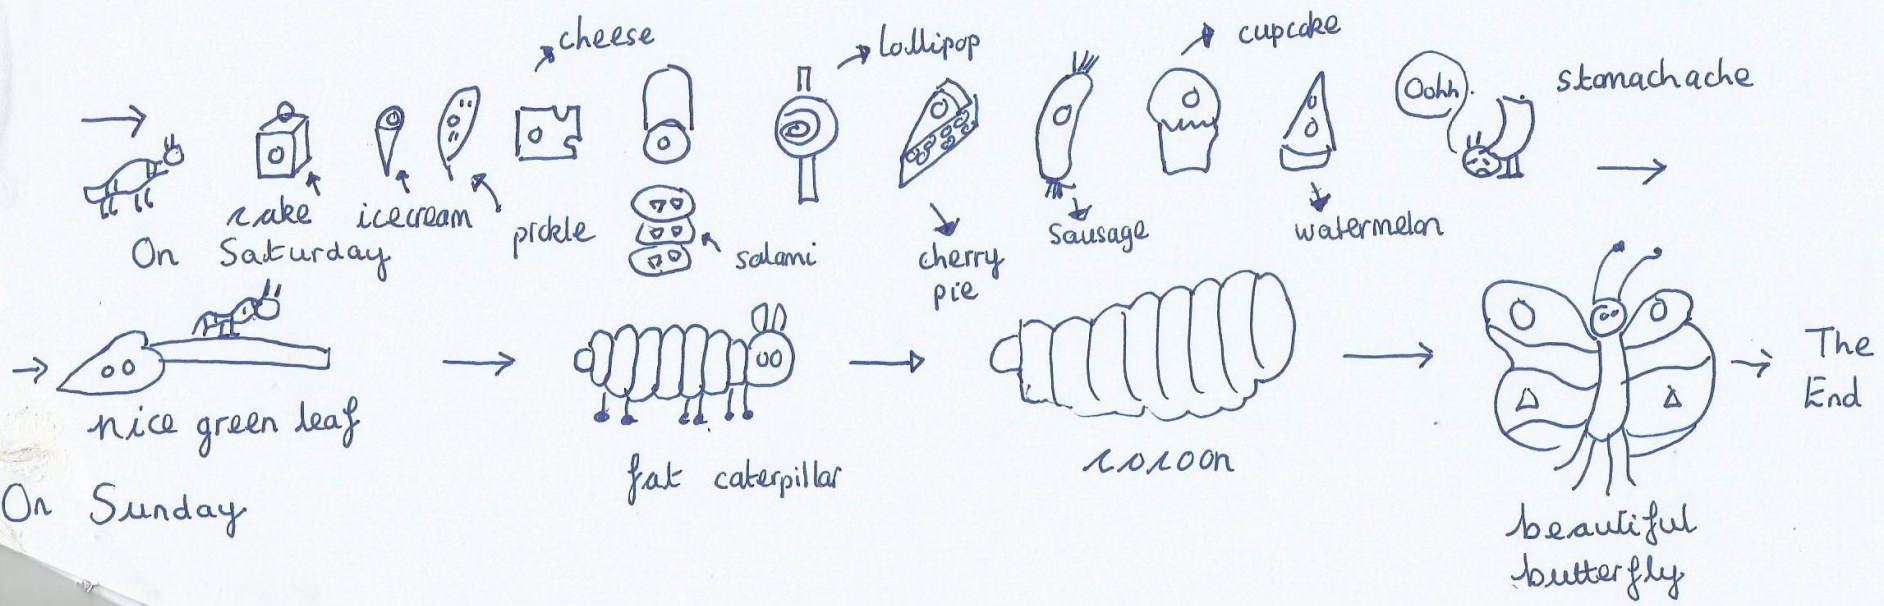 cheese
lollipop
cupcake
Oohh.
stomachache
cake
icecream
pickle
salami
cherry
pie
sausage
watermelon
On Saturday
nice green leaf
On Sunday
fat caterpillar
cocoon
beautiful
butterfly
The
End